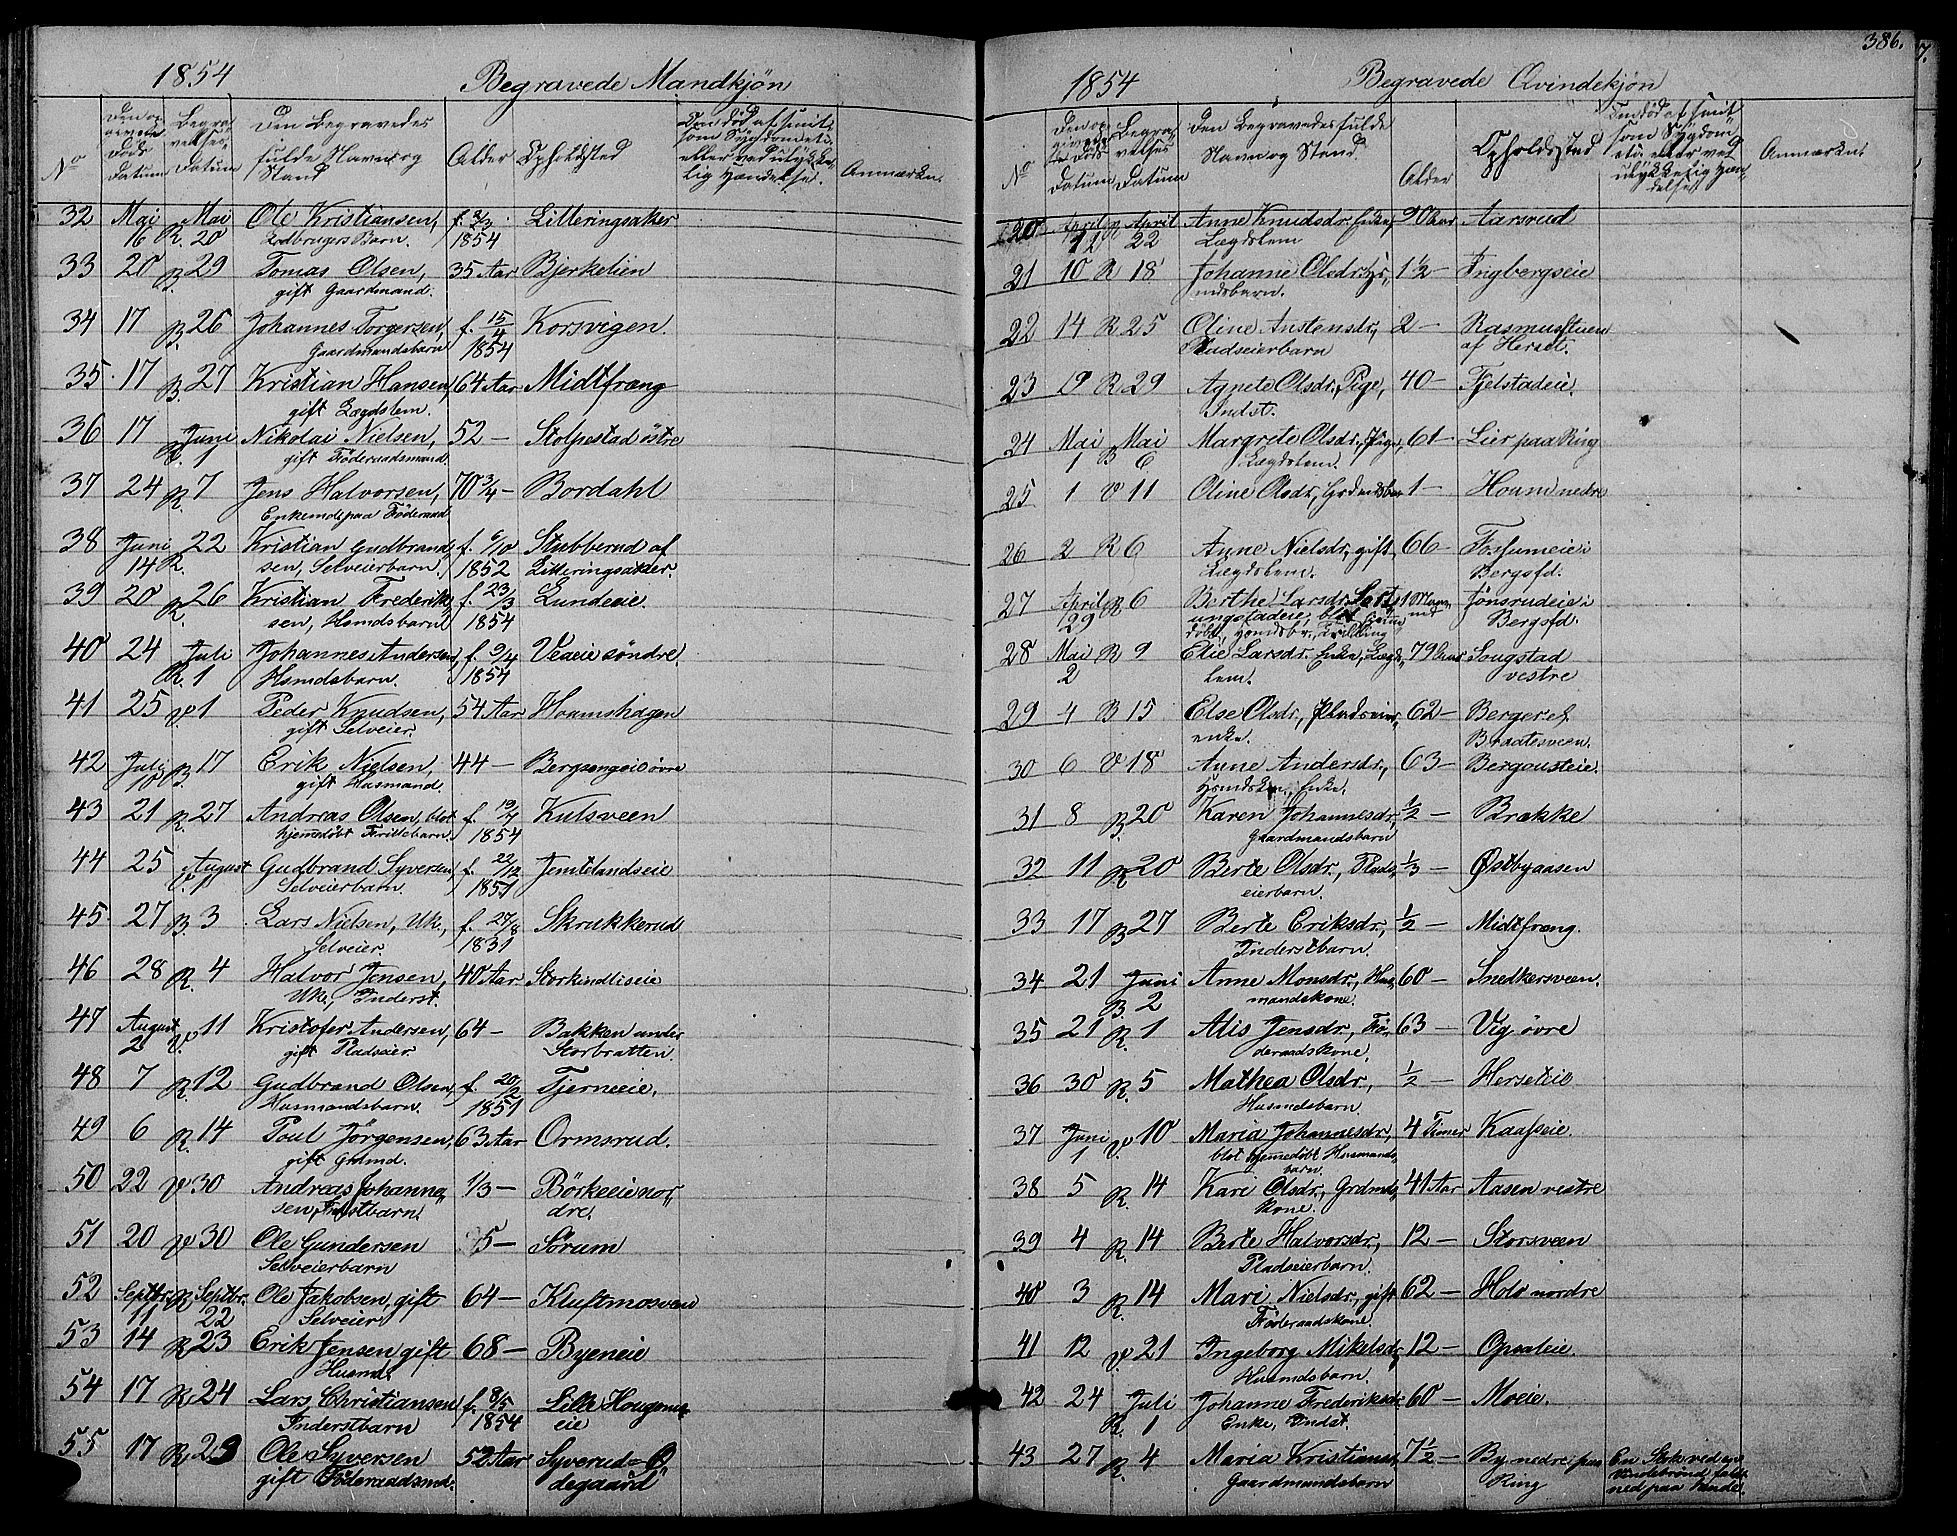 386.
1854 Begravede Mandkjøn
No
Den opgivende Døds Datum
Begravelses Datum
Den Begravedes fulde Navn og Stand
Alder
Opholdsted
Anmærkn.
32 Mai 16 R. Mai 20 Ole Kristiansen, f. 1854 Litteringsaker
Jordbrugers Barn.
33 20 R. 29 Tomas Olsen, 35 Aar Bjerkelien
gift Gaardmand.
34 17 R. 26 Johannes Torgersen, f. 15/4 1854 Korsvigen.
Gaardmandsbarn
35 17 B. 27 Kristian Hansen, 64 Aar Midtfræng
gift Lægdslem.
36 17 Juni 1 Nikolai Nielsen, 52 — Stolpestad østre
gift Föderaadsmand.
37 24 R. 7 Jens Halvorsen, 70 3/4 — Bordahl
Enkemd paa Föderaad
38 Juni 14 R. 22 Kristian Gudbrandsen, Selveierbarn. f. 6/10 1852 Stubberud af Litteringsaker.
39 20 R. 26 Kristian Frederiksen, Hsmdsbarn f. 23/3 1854 Lundeeie.
40 24 Juli R. 1 Johannes Andersen, f. 9/4 1854 Veaeie søndre.
Hsmdsbarn.
41 25 V. 1 Peder Knudsen, 54 Aar Houmshagen
gift Selveier.
42 Juli 10 B. 17 Erik Nielsen, 44 — Bergsengeie övre
gift Husmand.
43 21 R. 27 Andreas Olsen, blot f. 19/7 1854 Kulsveen
hjemdöbt Trillebarn.
44 25 August V. 11 Gudbrand Syversen, f. 22/12 1851 Jemtelandseie
Selveierbarn.
45 27 B. 3 Lars Nielsen, Uk., f. 27/8 1831 Skrukkerud
Selveier.
46 28 R. 4 Halvor Jensen, 40 Aar Storkindliseie
Uk., Inderst.
47 August 2 V. 11 Kristofer Andersen, 64 — Bakken under Storbratten.
gift Pladseier.
48 7 R. 12 Gudbrand Olsen, f. 20/2 1851 Tjerneeie.
Husmandsbarn.
49 6 R. 14 Poul Jörgensen, 63 Aar Ormsrud.
gift Grdmd.
50 22 V. 30 Andreas Johannessen, Indstbarn. 1/3 — Börkeeie nordre.
51 20 V. 30 Ole Gundersen 5 — Sörum
Selveierbarn
52 Septbr. 11 R. Septbr. 22 Ole Jakobsen, gift 64 — Kluftmosveen
Selveier
53 14 R. 23 Erik Jensen gift 68 — Byeneie
Husmd.
54 17 R. 24 Lars Christiansen f. 8/5 1854 Lille Hougnereie
Inderstbarn
55 17 R. 23 Ole Syversen 52 Aar Syverud=Ødegaard
gift Föderaadsmd.
1854 Begravede Qvindekjøn
No
Den opgivende Døds Datum
Begravelses Datum
Den Begravedes fulde Navn og Stand.
Alder
Opholdssted
Anmærkn.
20 April R. April 22 Anne Knudsdr. Enke, 90 Aar Aarsrud
Lægdslem
21 10 R 18 Johanne Olsdr. Hsmdsbarn. 1½ — Ingbergseie
22 14 R 25 Oline Austensdr., 2 — Rasmusstuen af Herset.
Pladseierbarn
23 19 R 29 Agnete Olsdr., Pige, 40 — Fjelstadeie.
Indst.
24 Mai 1 Mai B 6 Margrete Olsdr., Pige, 61 — Lier paa Ring
Lægdslem.
25 1 V 11 Oline Olsdr., Grdmdsbarn 1 — Houm nedre
26 2 R 6 Anne Nielsdr. gift, 66 — Fossumeie i Bergsfd.
Lægdslem.
27 April 29 R 6 Berthe Larsdr. 1 Maaned Jönsrudeie i Bergsfd.
28 Mai 2 R 9 Elie Larsdr. Enke, Lægdslem. 79 Aar Sougstad vestre
29 4 B 15 Else Olsdr., Pladseierenke. 62 — Berger ell. Braatesveen.
30 6 V 18 Anne Andersdr., 63 — Bergousteie.
Hsmdsken, Enke.
31 8 B. 20 Karen Johannesdr., ½ — Brække
Gaardmandsbarn
32 11 R 20 Berte Olsdr., Pladseierbarn. 1/3 — Østbyaasen
33 17 B 27 Berte Eriksdr., ½ — Midtfræng.
Inderstbarn.
34 21 Juni B. 2 Anne Monsdr., Husmandskone. 60 — Snedkersveen.
35 21 R. 1 Alis Jensdr., Föderaadskone. 63 — Vig övre
36 30 R. 5 Mathea Olsdr., ½ — Herseteie
Husmdsbarn.
37 Juni 1 V. 10 Maria Johannesdr., 4 Timer Kaasseie.
blot hjemedöbt Husmandsbarn.
38 5 R. 14 Kari Olsdr., Grdmdskone. 41 Aar Aasen vestre
39 4 R. 14 Berte Halvorsdr., 12 — Storsveen
Pladseierbarn.
40 3 R. 14 Mari Nielsdr., gift 62 — Hole nordre
Föderaadskone.
41 12 V. 21 Ingeborg Mikelsdr., 12 — Opsaleie.
Husmdsbarn.
42 24 Juli R. 1 Johanne Frederiksdr. 60 — Moeie.
Enke, Indst.
43 27 R. 4 Maria Kristiansd., 7½ — By nedre paa Ring
Gaardmandsbarn
En Stok ved en Vindebrönd faldt ned paa hende.